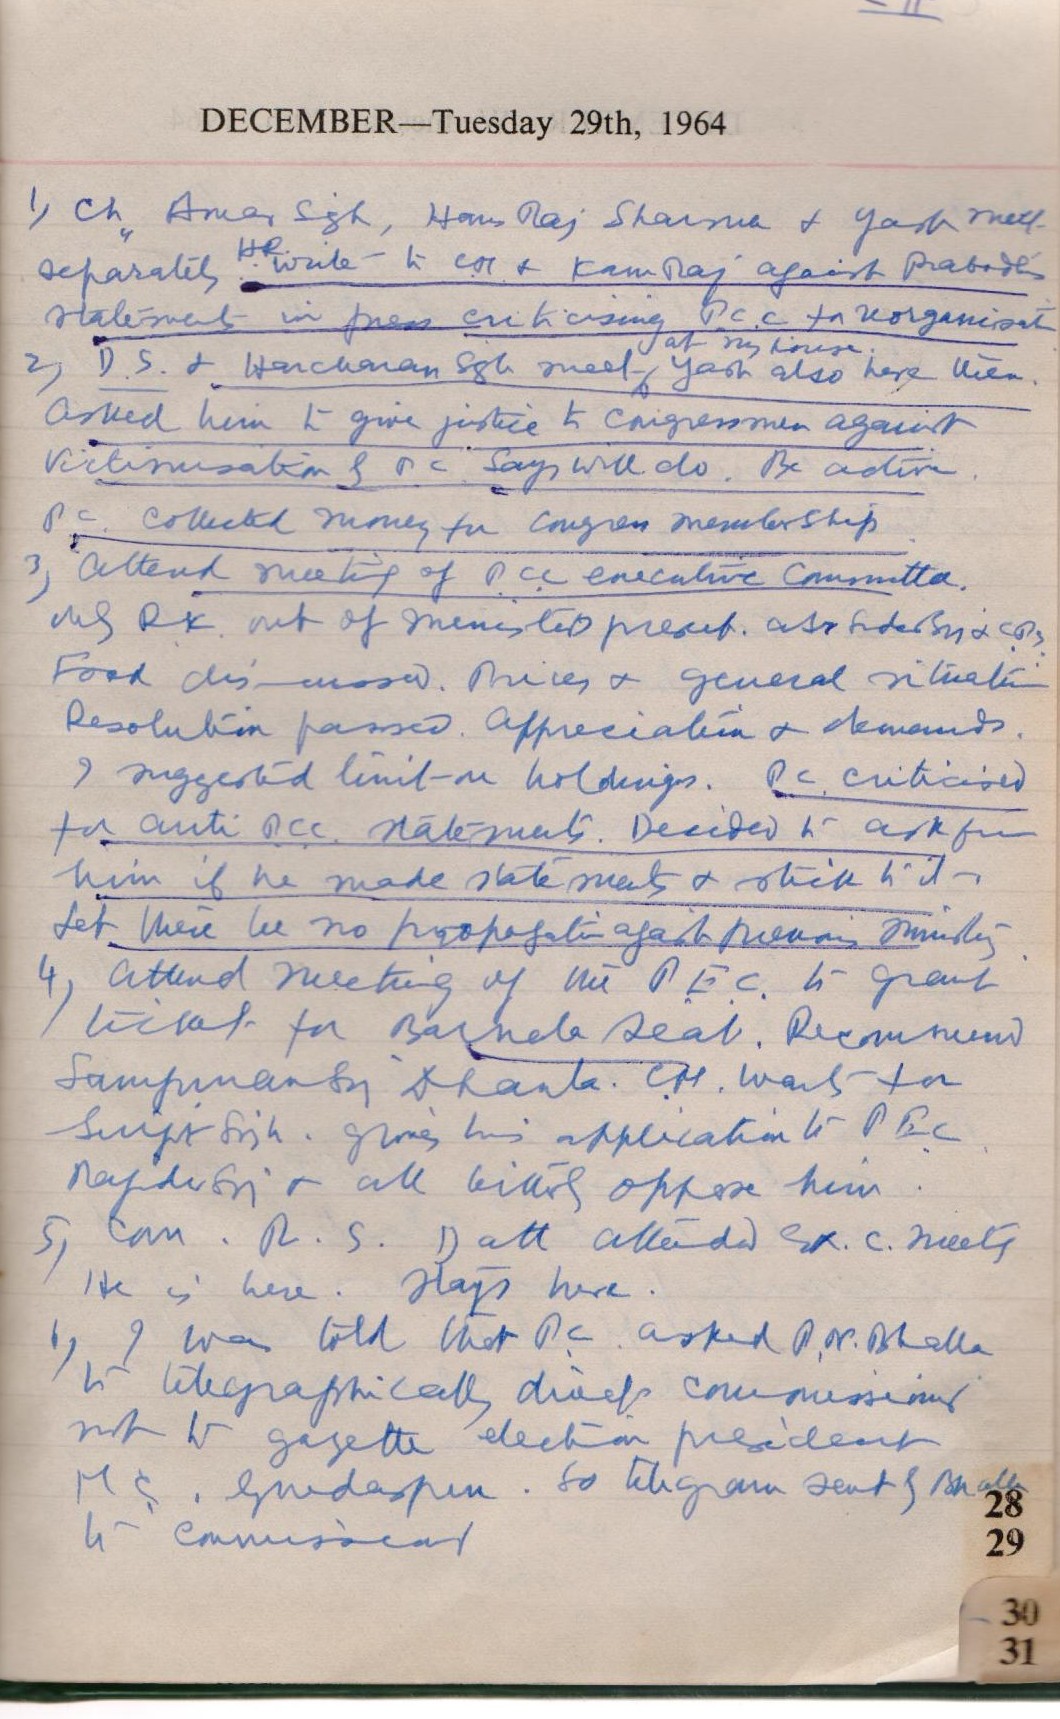 DECEMBER—Tuesday 29th, 1964
1) Ch. Amar Sgh, Hans Raj Sharma & Yash meet
separately HR write to CM & Kam Raj against Prabodh's
statements in press criticising P.C.C for reorganisati
at my house.
2) D.S. & Harcharan Sgh meet, Yash also here then.
Asked him to give justice to Congressmen against
victimisation by P.C. Says will do. Be active.
P.C. collected money for Congress membership
3) Attend meeting of P.C.C executive Committee.
only R.K. out of present. also &
Food discussed. Prices & general situation
Resolution passed. Appreciation & demands.
I suggested limit on holdings. P.C. criticised
for anti P.C.C. statements. Decided to ask from
him if he made statements & stick to it.
Let there be no against previous ministry
4) Attend meeting of the P.E.C. to grant
ticket for Barnala seat. Recommend
Sampuran Sgh Dhaula. C.M. wants for
Surjit Sgh. gives his application to P.E.C.
& all bitterly oppose him.
5) Com. R. S. Datt attended Ex. C. meets
He is here. Stays here.
6) I was told that P.C. asked P.N. Bhalla
to telegraphically direct commissioner
not to gazette election president
M C, Gurdaspur. So telegram sent by Bhalla
to commissioner
28
29
30
31